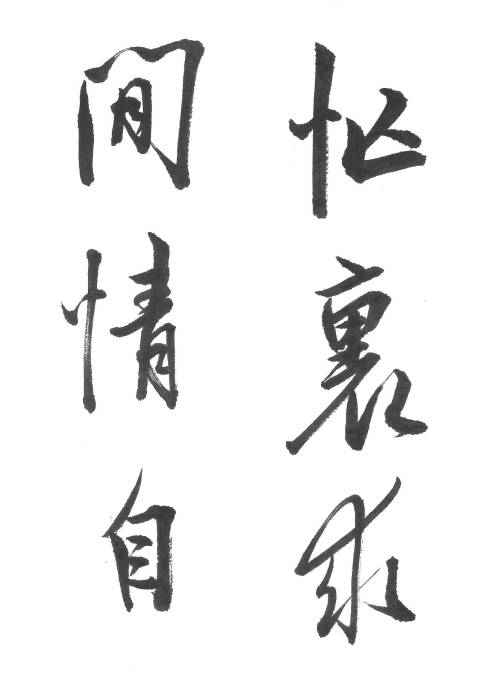 忙裏求
閒情自